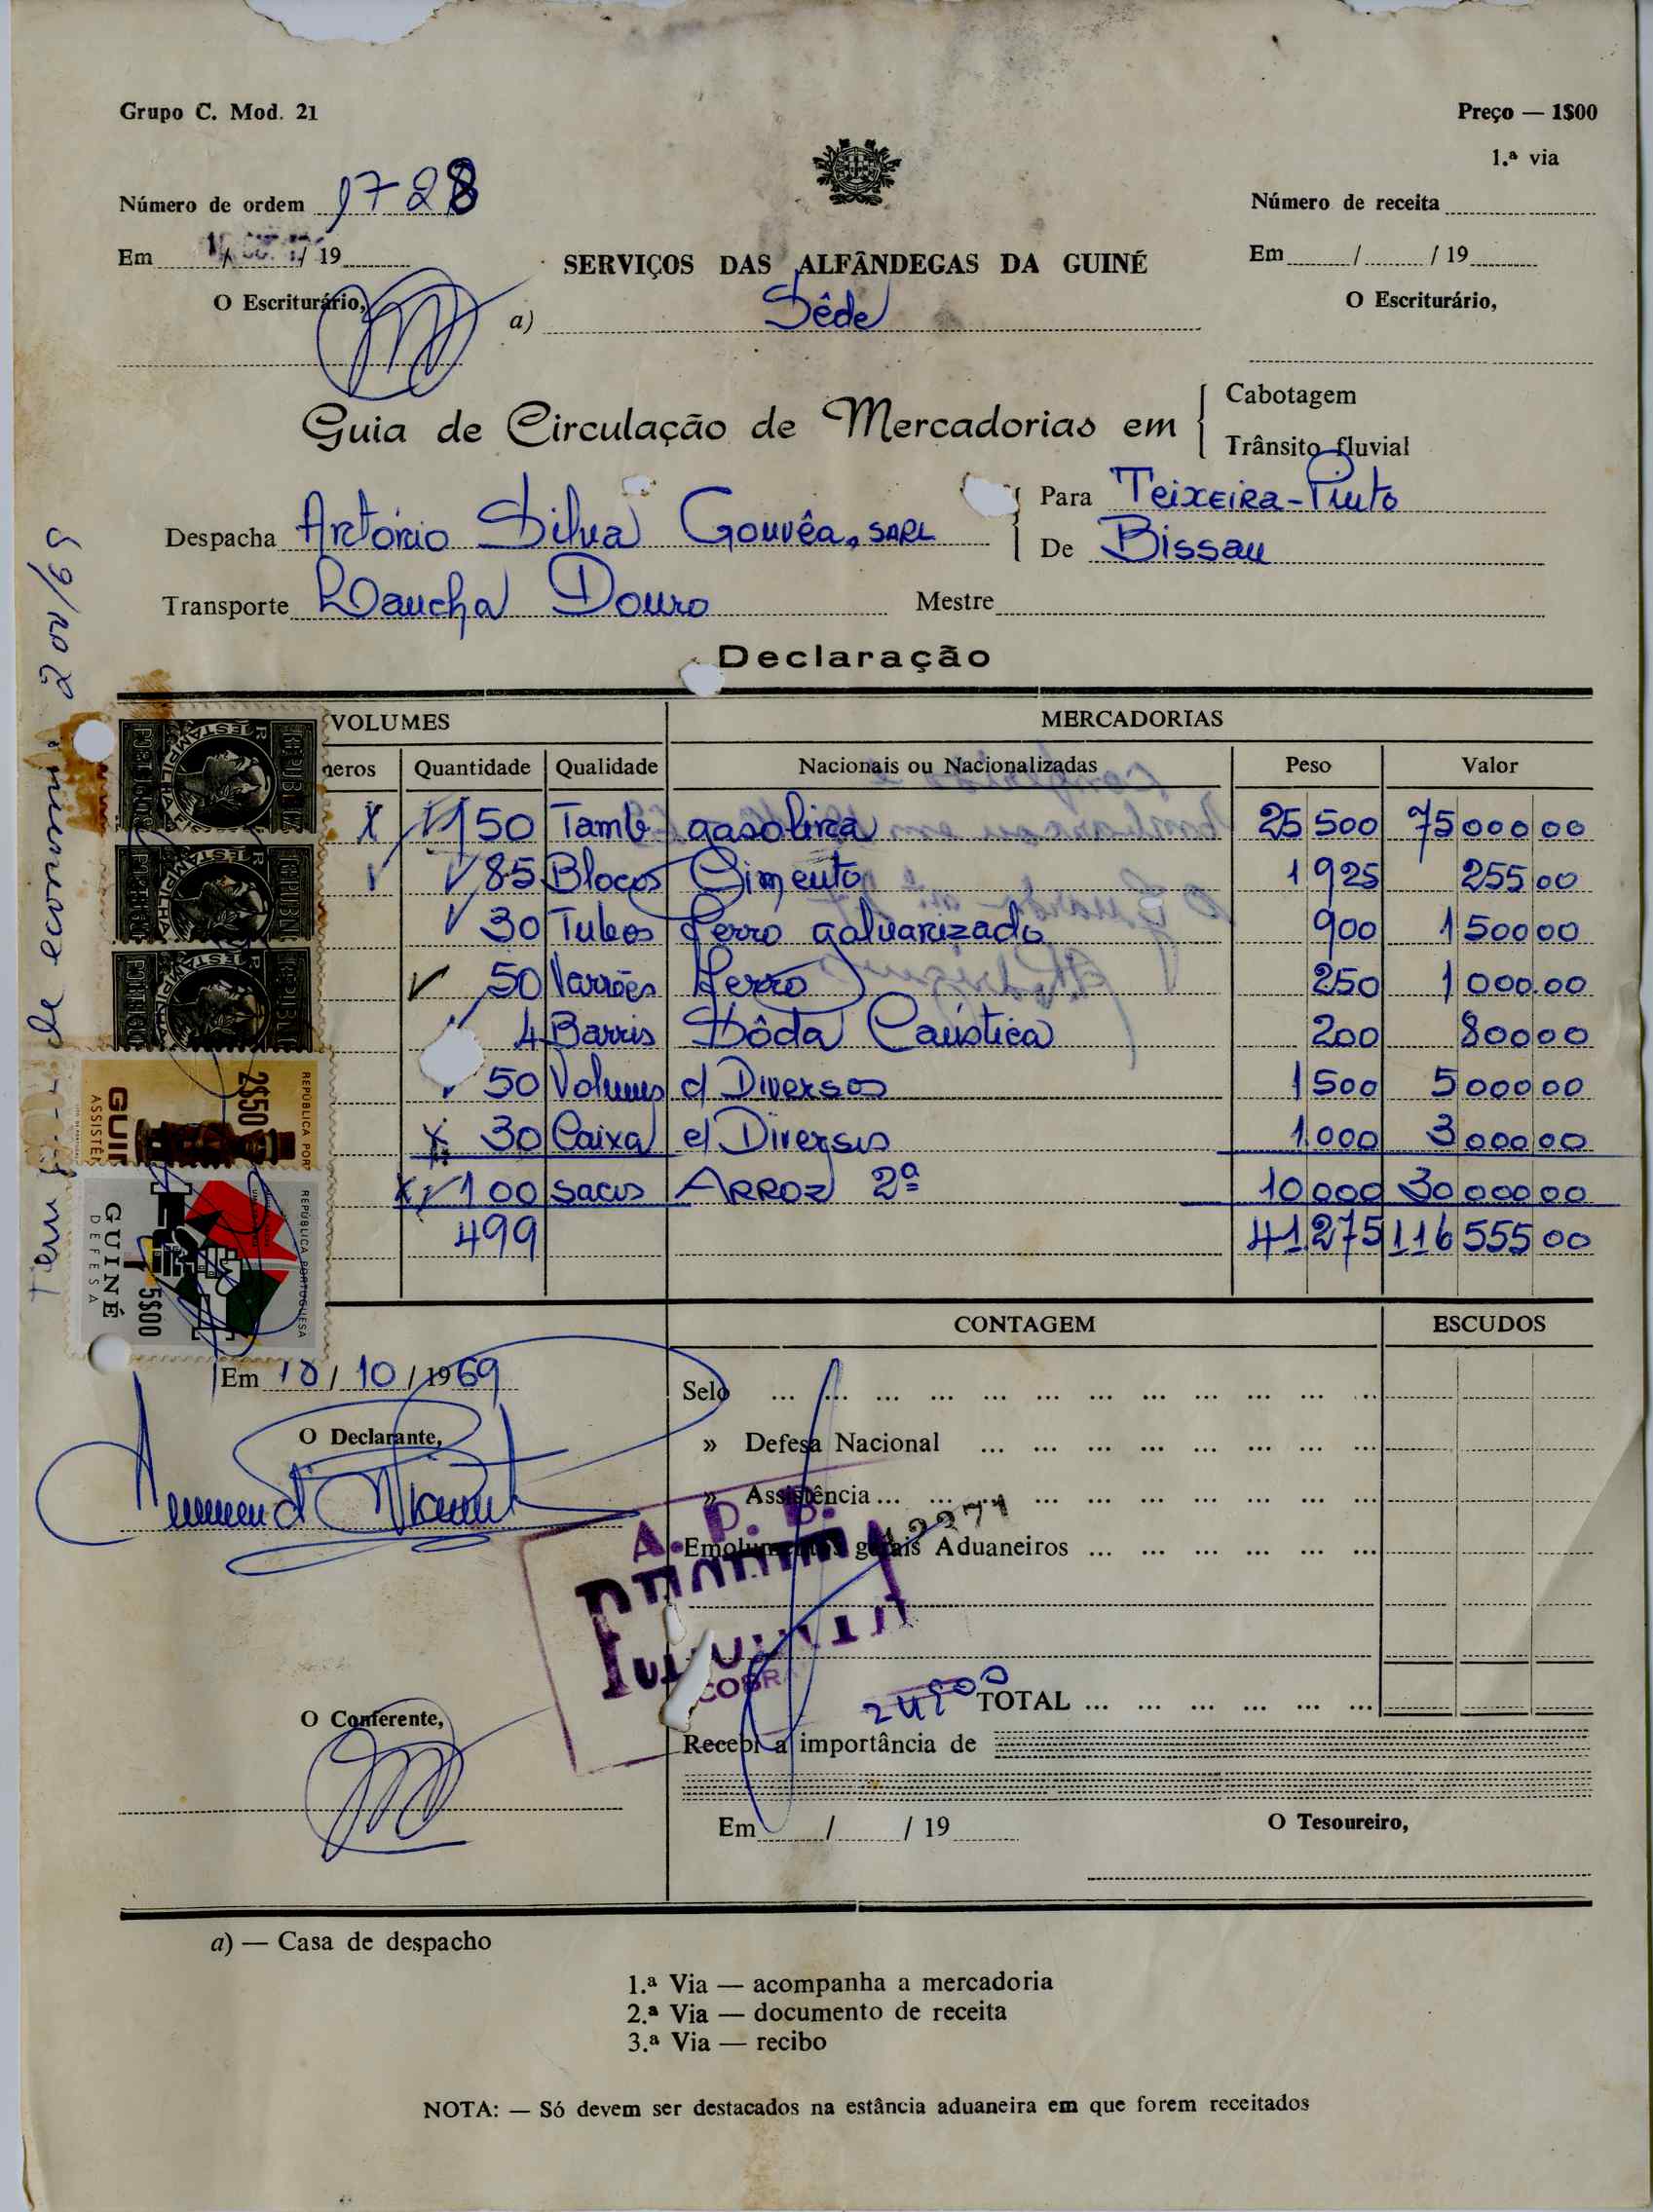 Grupo C. Mod. 21
Preço — 1$00
1.ª via
Número de ordem 1728
Número de receita
Em / / 19
Em / / 19
SERVIÇOS DAS ALFÂNDEGAS DA GUINÉ
O Escriturário,
O Escriturário,
a) Séde
Guia de Circulação de Mercadorias em
Cabotagem
Trânsito fluvial
Despacha António Silva Gouvêa, SARL
Para Teixeira-Pinto
De Bissau
Transporte Lancha Douro
Mestre
Declaração
VOLUMES MERCADORIAS
neros Quantidade Qualidade Nacionais ou Nacionalizadas Peso Valor
150 Tamb. gasolina 25 500 75 000 00
85 Blocos Cimento 1 925 255 00
30 Tubos ferro galvanizado 900 1 500 00
50 Varrões Ferro 250 1 000.00
4 Barris Sôda Caústica 200 800 00
50 Volumes d Diversos 1 500 5 000 00
30 Caixa d Diversos 1.000 3 000 00
100 sacos ARROZ 2ª 10 000 30 000 00
499 41.275 116 555 00
REPÚBLICA PORTUGUESA
2$50
GUINÉ
DEFESA
5$00
CONTAGEM ESCUDOS
Em 10 / 10 / 1969
Selo
» Defesa Nacional
O Declarante,
» Assistência
Emolumentos gerais Aduaneiros
A. P. B.
24$00
TOTAL
O Conferente,
Recebi a importância de
Em / / 19
O Tesoureiro,
a) — Casa de despacho
1.ª Via — acompanha a mercadoria
2.ª Via — documento de receita
3.ª Via — recibo
NOTA: — Só devem ser destacados na estância aduaneira em que forem receitados